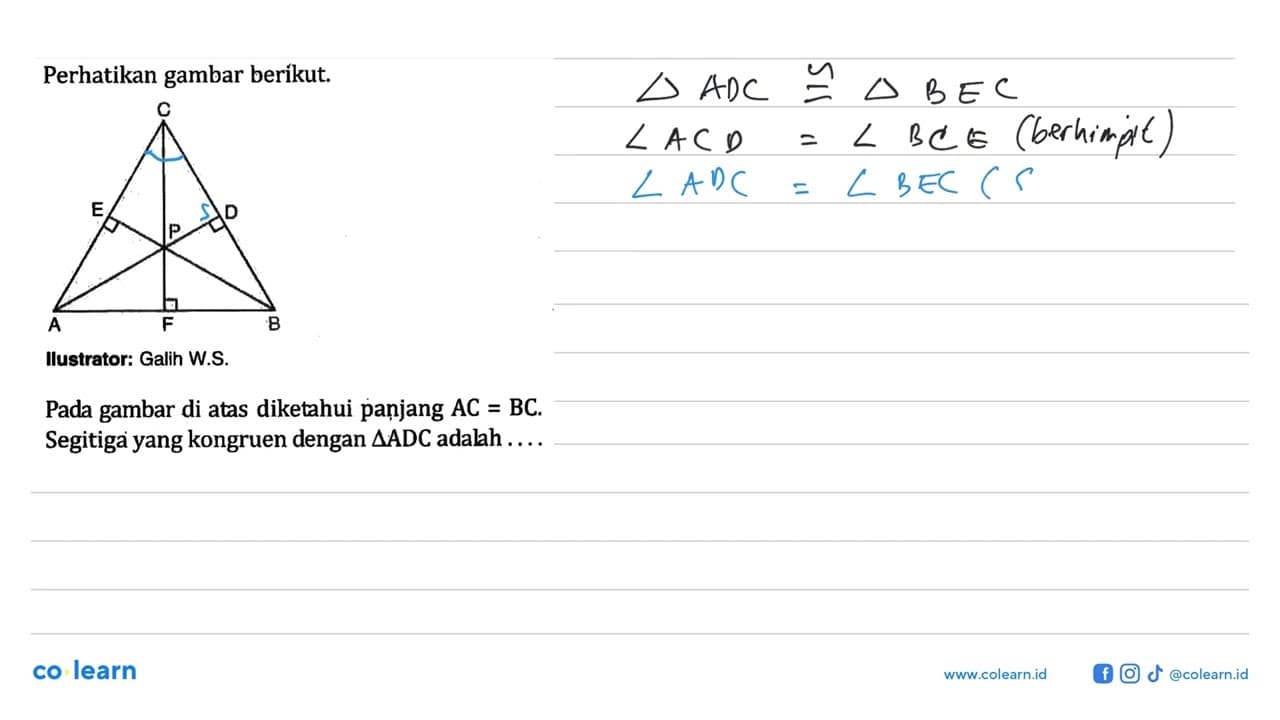 Perhatikan gambar berikut.
C
E
D
P
A
F
B
Ilustrator: Galih W.S.
Pada gambar di atas diketahui panjang AC = BC.
Segitiga yang kongruen dengan ΔADC adalah . . . .
△ ADC ≅ △ BEC
∠ ACD = ∠ BCE (berhimpit)
∠ ADC = ∠ BEC ( S
co learn
www.colearn.id
@colearn.id